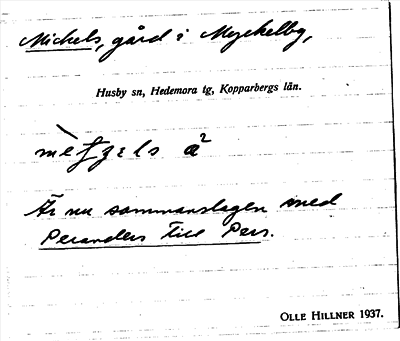 Michels, gård i Myckelby,
Husby sn, Hedemora tg, Kopparbergs län.
Är nu sammanslagen med
Peranders till Pers.
OLLE HILLNER 1937.